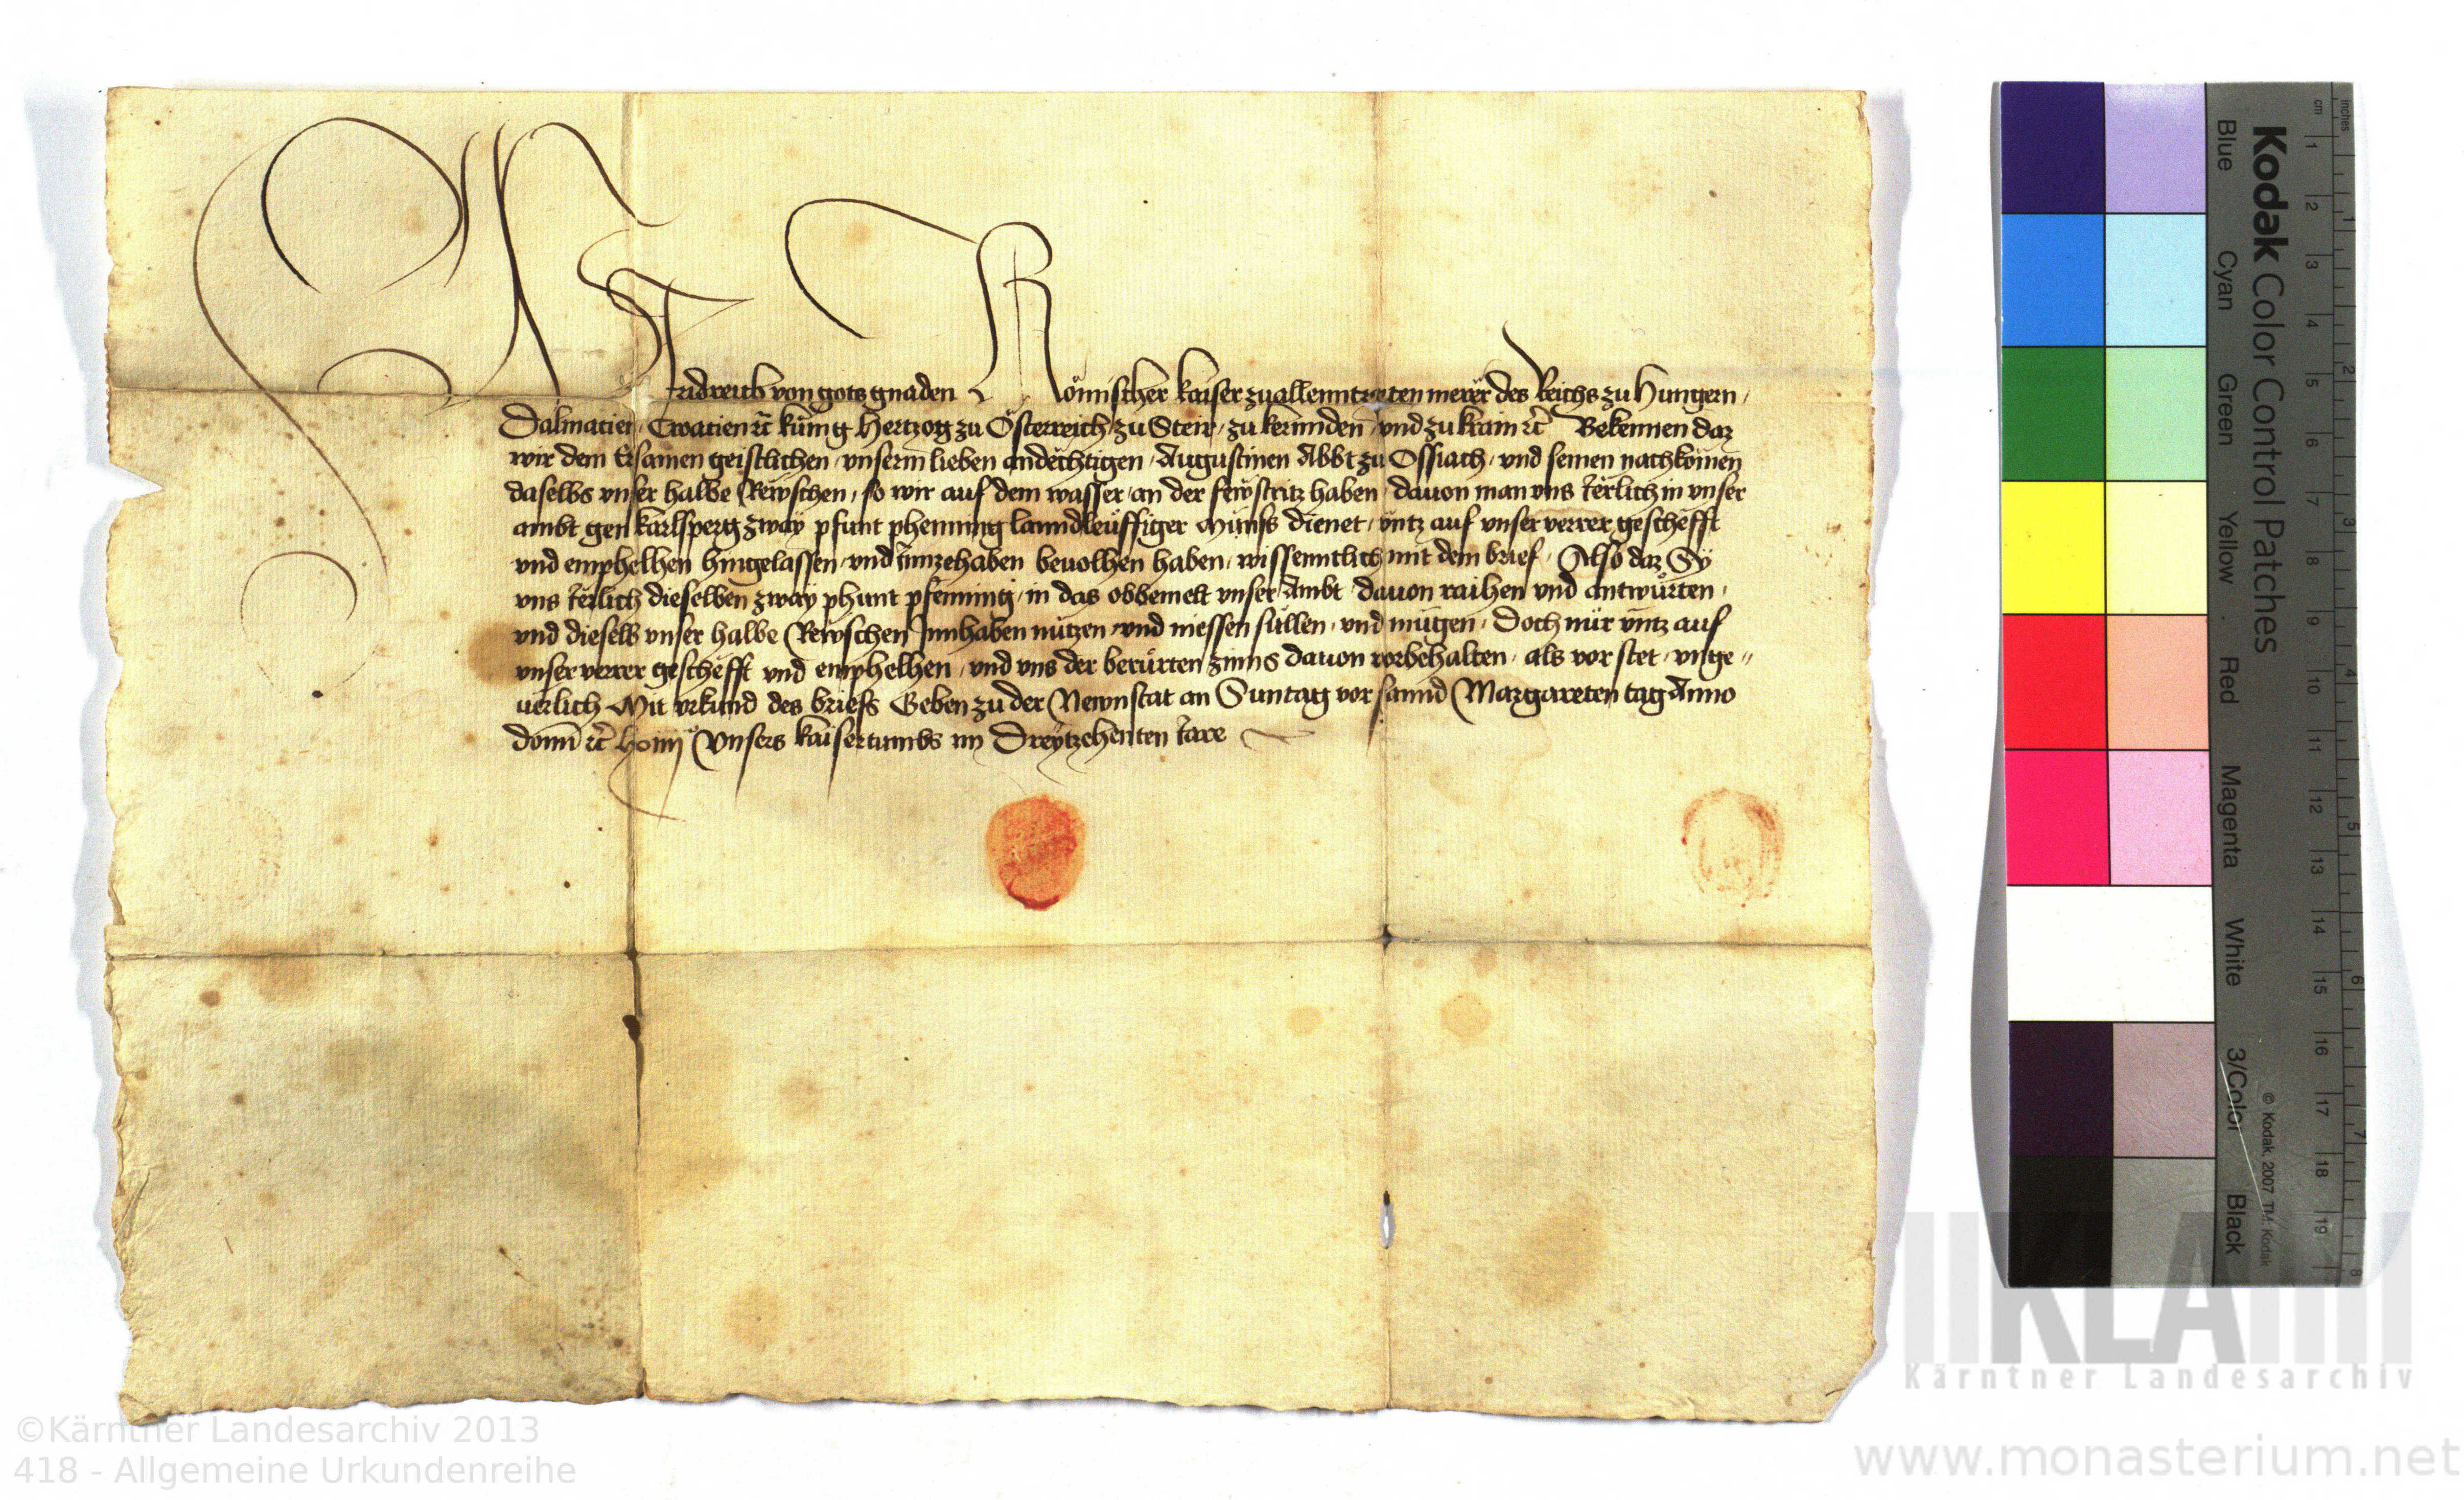 Wir Fridreich von gots gnaden Römischer kaiser zuallennczeiten merer des Reichs zu Hungern,
Dalmatien, Croatien etc̃ kunig Hertzog zu Österreich, zu Steir, zu kernnden und zu krain etc̃ Bekennen daz
wir dem Ersamen geistlichen, unserm lieben andechtigen, Augustinen Abbt zu Ossiach, und seinen nachkomen
daselbs unser halbe Rewschen, so wir auf dem wasser an der fewstritz haben, dauon man uns Jerlich in unser
ambt gen karlsperg zway pfunt phenning lanndleuffiger Münss dienet, untz auf unser verrer geschefft
und emphelhen hingelassen, und Innzehaben beuolhen haben, wissenntlich mit dem brief, Also daz Sy
uns Jerlich dieselben zway phunt pfenning, in das obbemelt unser Ambt dauon raihen und antwurten,
und dieselb unser halbe Rewschen Innhaben nutzen und niessen sullen, und mugen, Doch nur untz auf
unser verrer geschefft und emphelhen, und uns der berurten zinns dauon vorbehalten, als vor stet, unge„
uerlich Mit urkund des briefs Geben zu der Newnstat an Suntag vor sannd Margareten tag Anno
domi etc̃ Unsers kaisertumbs im Dreytzehenten Jare
Kodak Color Control Patches
inches
cm
1 2 3 4 5 6 7 8 9 10 11 12 13 14 15 16 17 18 19
1 2 3 4 5 6 7 8
Blue Cyan Green Yellow Red Magenta White 3/Color Black
© Kodak, 2007 TM: Kodak
KLA
Kärntner Landesarchiv
©Kärntner Landesarchiv 2013
418 - Allgemeine Urkundenreihe
www.monasterium.net